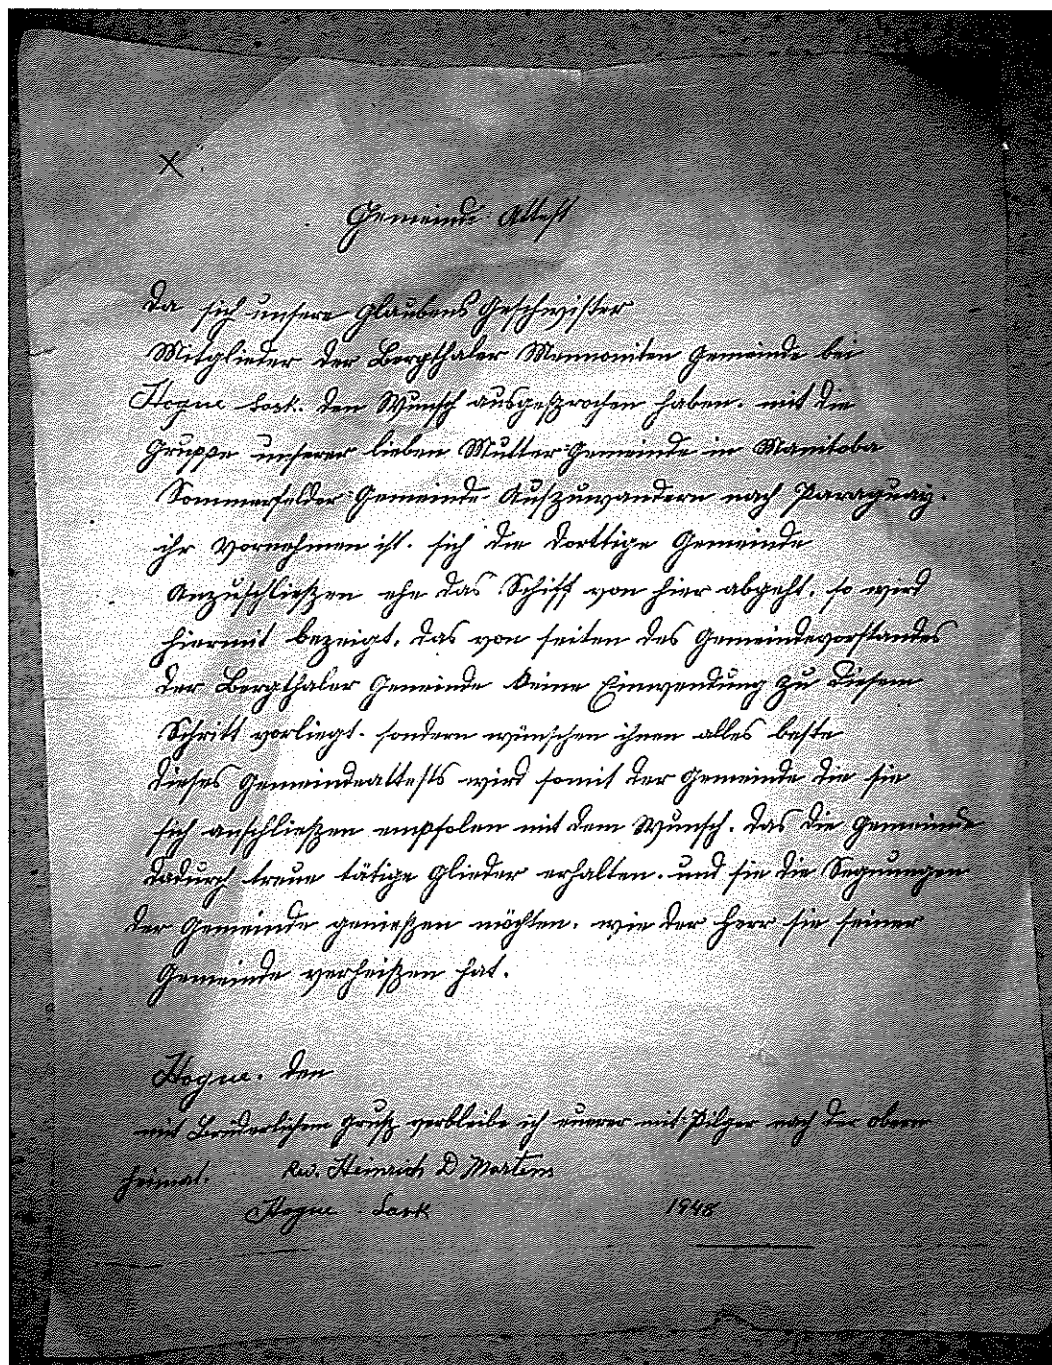 X
Gemeinde Attest
Da sich unsere Glaubens Geschwister
Mitglieder der Bergthaler Mennoniten Gemeinde bei
Hague Sask. den Wunsch ausgesprochen haben. mit die
Gruppe unserer lieben Mutter Gemeinde in Manitoba
Sommerfelder Gemeinde Auszuwandern nach Paraguay.
ihr Vornehmen ist. sich die dorttige Gemeinde
Anzuschließen ehe das Schiff von hier abgeht, so wird
hiermit bezeigt, das von seiten des Gemeindevorstandes
der Bergthaler Gemeinde keine Einwendung zu diesem
Schritt vorliegt. sondern wünschen ihnen alles beste
dieses Gemeindeattests wird somit der Gemeinde die sie
sich anschließen empfolen mit dem Wunsch. das die Gemeinde
dadurch treue tätige Glieder erhalten. und sie die Segnungen
der Gemeinde genießen möchten. wie der Herr sie seiner
Gemeinde verheißen hat.
Hague. den
mit Brüderlichem Gruß verbleibe ich eurer mit Pilger nach der obern
heimat. Rev. Heinrich D Martens
Hague Sask 1948